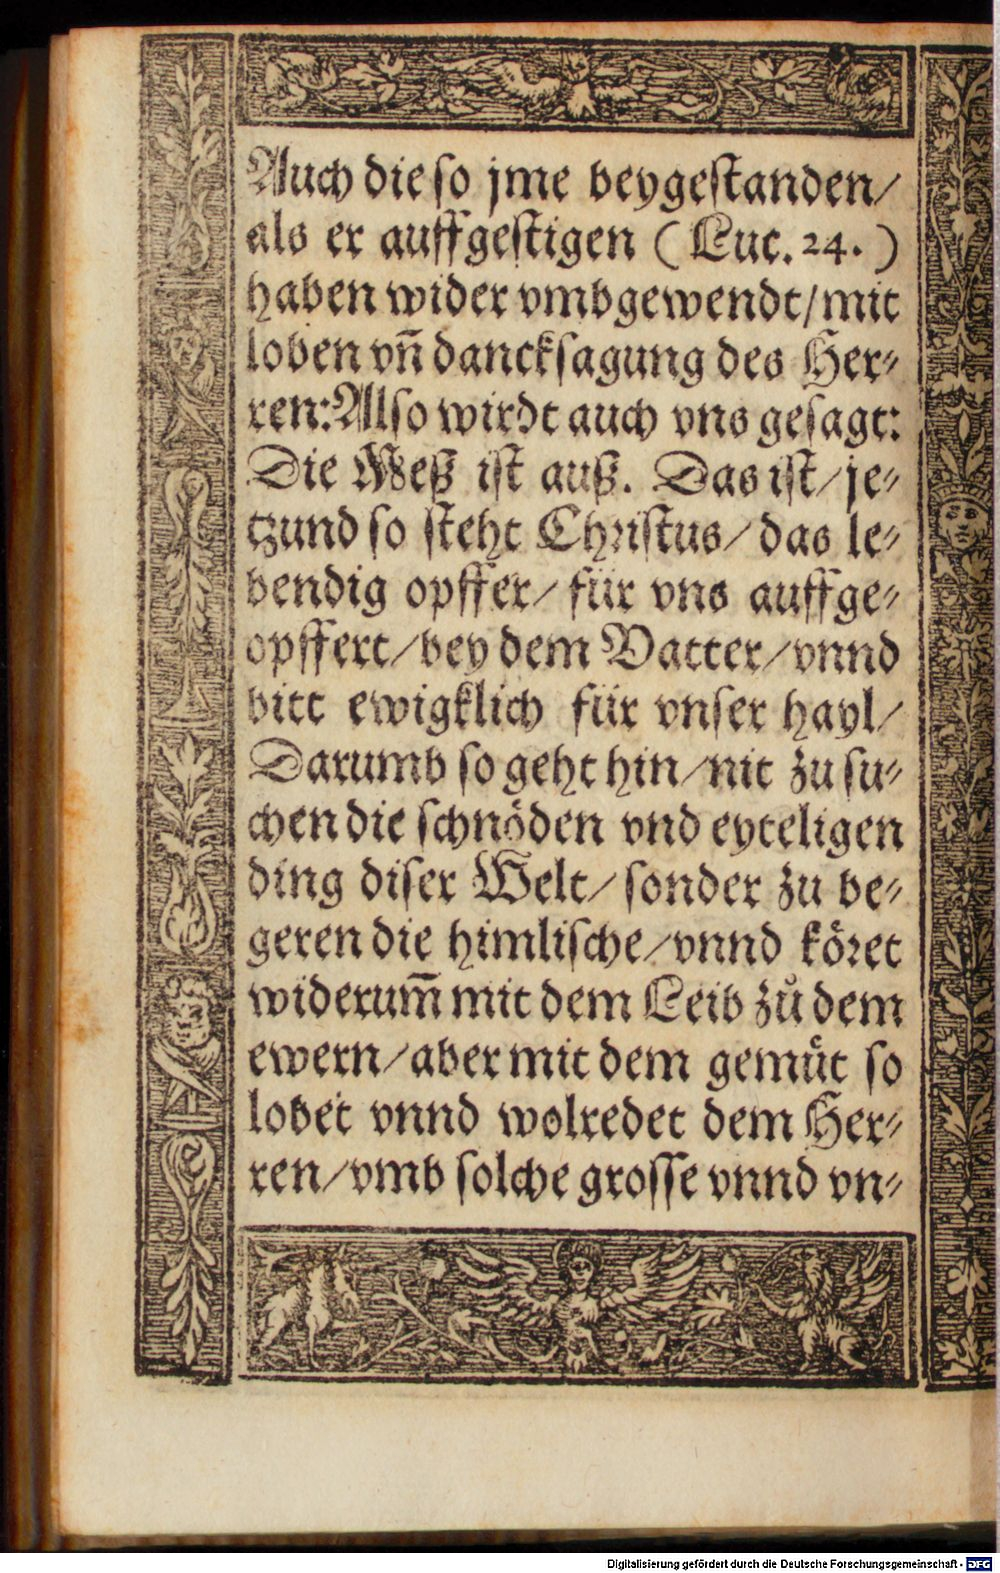 Auch die so jme beygestanden/
als er auffgestigen (Luc. 24.)
haben wider vmbgewendt/mit
loben vñ dancksagung des Her⸗
ren:Also wirdt auch vns gesagt:
Die Meß ist auß. Das ist/je⸗
tzund so steht Christus/das le⸗
bendig opffer/für vns auffge⸗
opffert/bey dem Vatter/vnnd
bitt ewigklich für vnser hayl/
Darumb so geht hin/nit zu su⸗
chen die schnöden vnd eyteligen
ding diser Welt/sonder zu be⸗
geren die himlische/vnnd köret
widerum̃ mit dem Leib zů dem
ewern/aber mit dem gemüt so
lobet vnnd wolredet dem Her⸗
ren/vmb solche grosse vnnd vn⸗
Digitalisierung gefördert durch die Deutsche Forschungsgemeinschaft - DFG